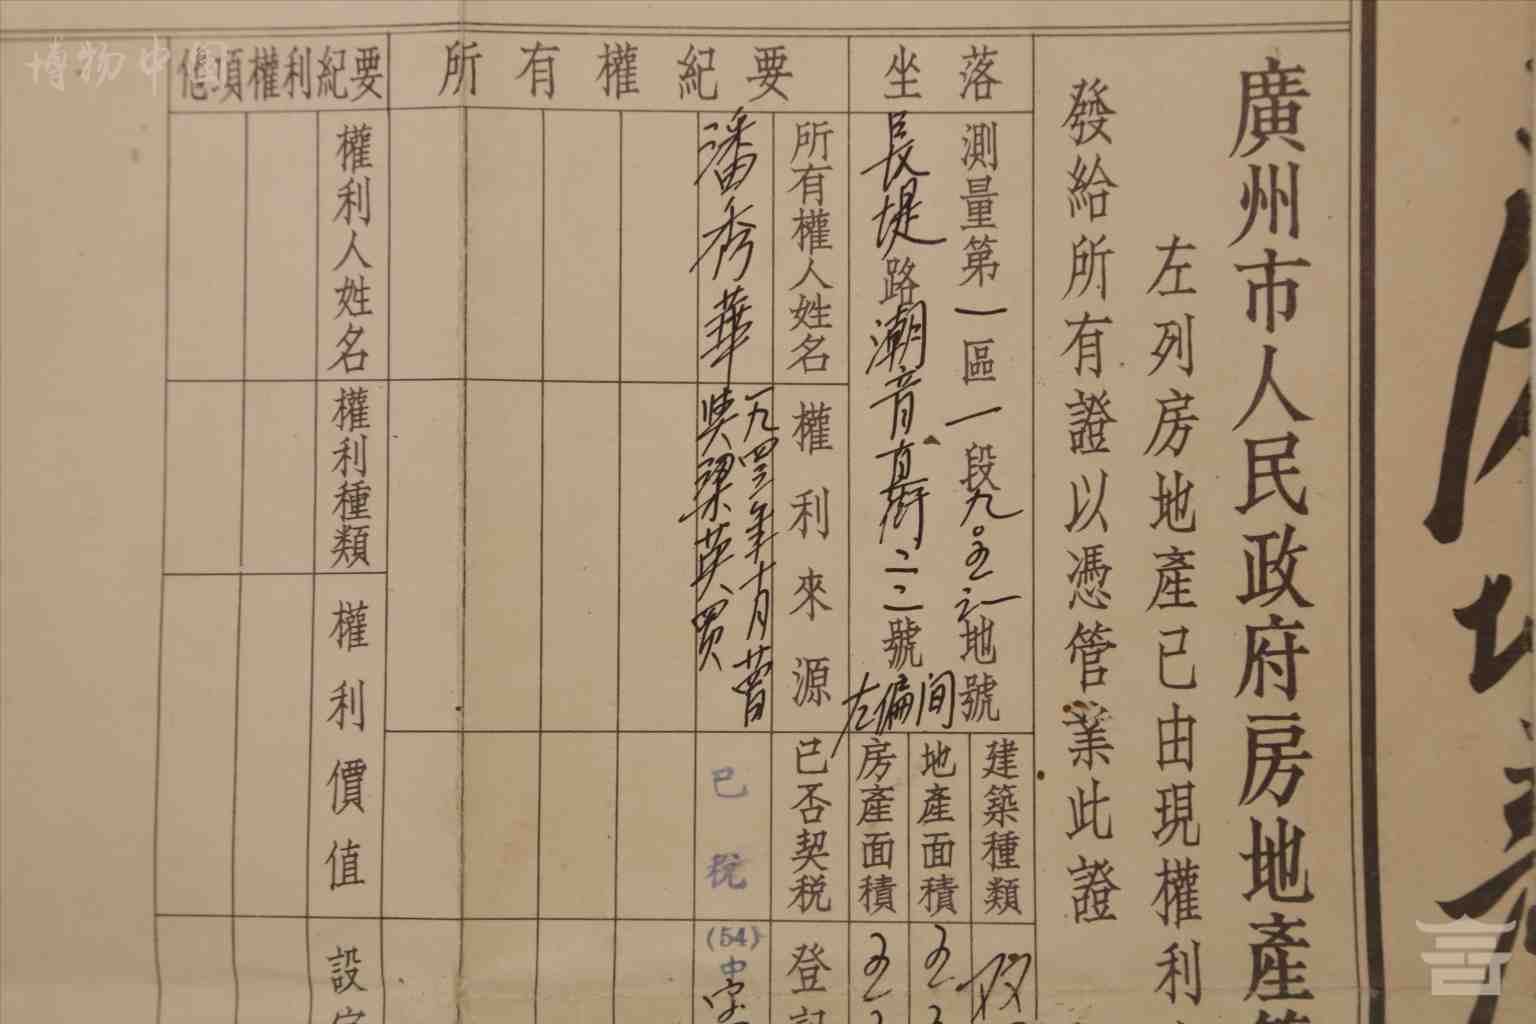 廣州市人民政府房地產
左列房地產已由現權利
發給所有證以憑管業此證
落坐
測量第一區一段九〇五之一地號
長堤路潮音直街二二號
左偏间
建築種類
地產面積
房產面積
五
五
要紀權有所
所有權人姓名
權利來源
已否契税
登記
潘秀華
一九四三年十月
吳梁英買
已税
(54)
中字
要紀利權項他
權利人姓名
權利種類
權利價值
設定
博物中国